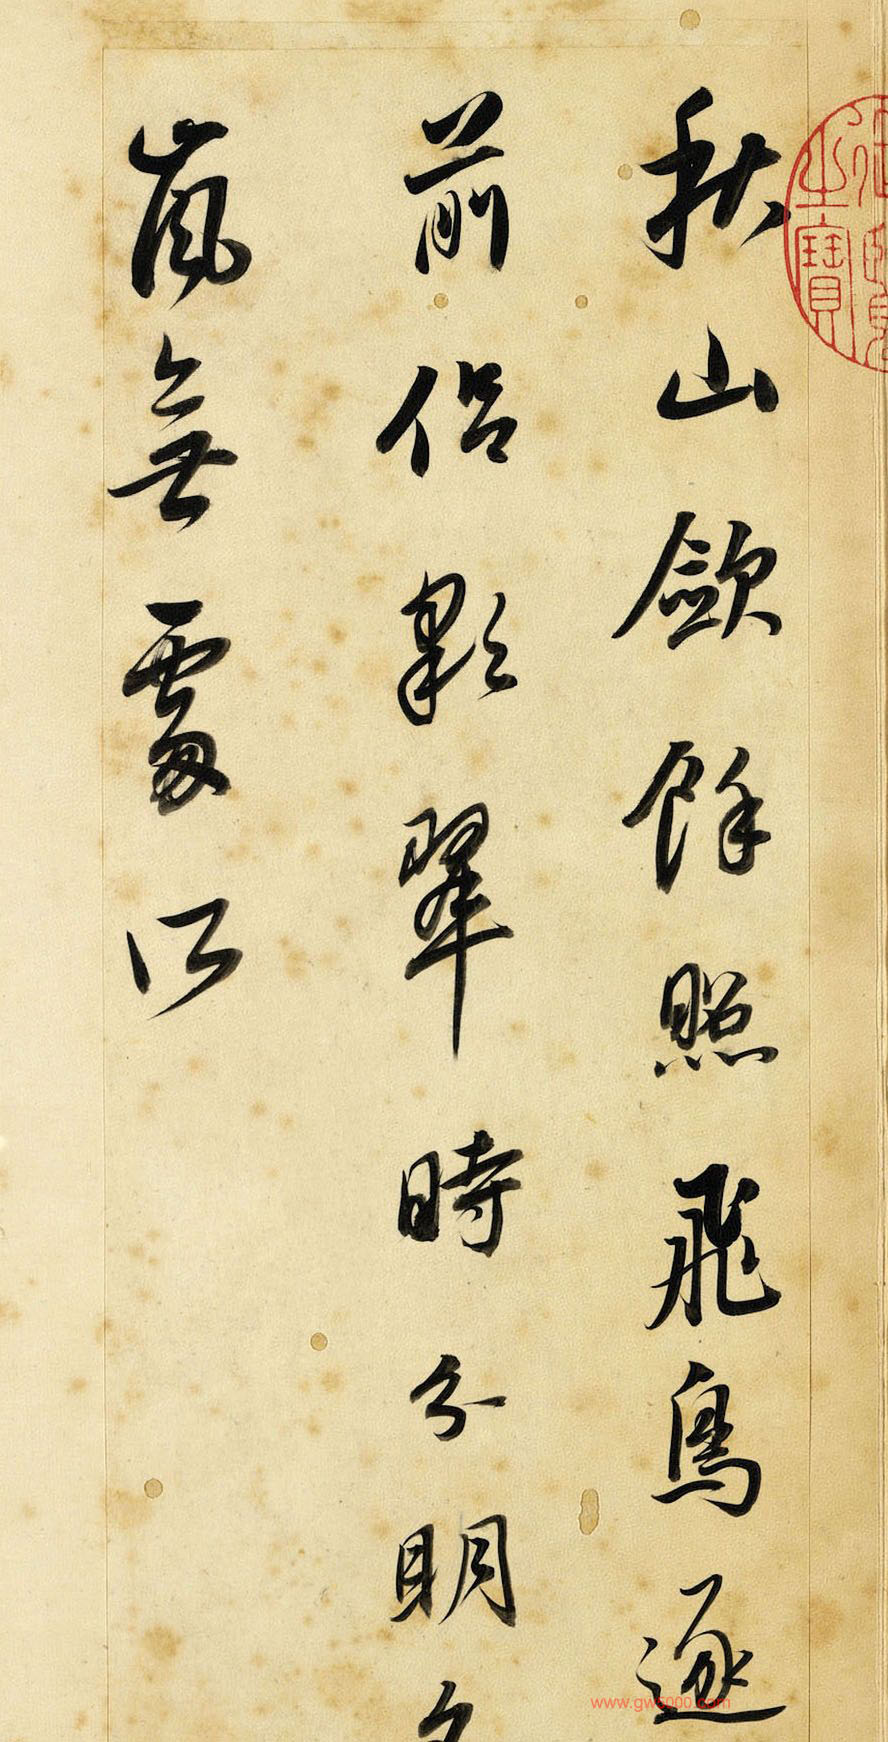 秋山歛餘照飛鳥逐
前侣彩翠時分明夕
嵐無處所
www.gw5000.com